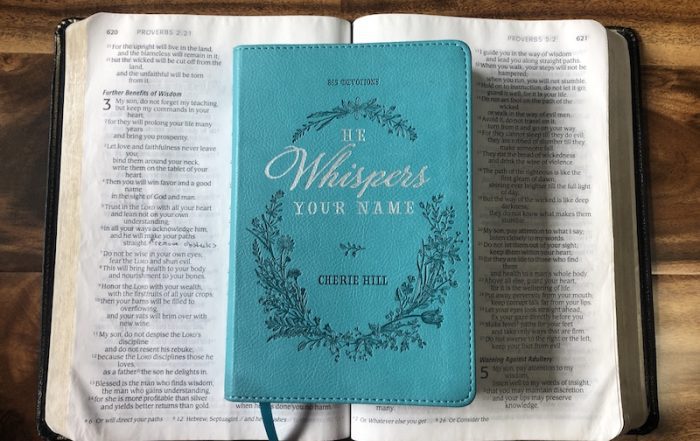 620 PROVERBS 2:21
21 For the upright will live in the land,
and the blameless will remain in it;
22 but the wicked will be cut off from the
land,
and the unfaithful will be torn
from it.
Further Benefits of Wisdom
3 My son, do not forget my teaching,
but keep my commands in your
heart,
2 for they will prolong your life many
years
and bring you prosperity.
3 Let love and faithfulness never leave
you;
bind them around your neck,
write them on the tablet of your
heart.
4 Then you will win favor and a good
name
in the sight of God and man.
5 Trust in the LORD with all your heart
and lean not on your own
understanding;
6 in all your ways acknowledge him,
and he will make your paths
straight.
7 Do not be wise in your own eyes;
fear the LORD and shun evil.
8 This will bring health to your body
and nourishment to your bones.
9 Honor the LORD with your wealth,
with the firstfruits of all your crops;
10 then your barns will be filled to
overflowing,
and your vats will brim over with
new wine.
11 My son, do not despise the LORD's
discipline
and do not resent his rebuke,
12 because the LORD disciplines those he
loves,
as a father the son he delights in.
13 Blessed is the man who finds wisdom,
the man who gains understanding,
14 for she is more profitable than silver
and yields better returns than gold.
a 6 Or will direct your paths b 12 Hebrew; Septuagint / and he
365 DEVOTIONS
HE
Whispers
YOUR NAME
CHERIE HILL
PROVERBS 5:2 621
11 I guide you in the way of wisdom
and lead you along straight paths.
12 When you walk, your steps will not be
hampered;
when you run, you will not stumble.
13 Hold on to instruction, do not let it go;
guard it well, for it is your life.
14 Do not set foot on the path of the
wicked
or walk in the way of evil men.
15 Avoid it, do not travel on it;
turn from it and go on your way.
16 For they cannot sleep till they do evil;
they are robbed of slumber till they
make someone fall.
17 They eat the bread of wickedness
and drink the wine of violence.
18 The path of the righteous is like the
first gleam of dawn,
shining ever brighter till the full light
of day.
19 But the way of the wicked is like deep
darkness;
they do not know what makes them
stumble.
20 My son, pay attention to what I say;
listen closely to my words.
21 Do not let them out of your sight,
keep them within your heart;
22 for they are life to those who find
them
and health to a man's whole body.
23 Above all else, guard your heart,
for it is the wellspring of life.
24 Put away perversity from your mouth;
keep corrupt talk far from your lips.
25 Let your eyes look straight ahead,
fix your gaze directly before you.
26 Make level paths for your feet
and take only ways that are firm.
27 Do not swerve to the right or the left;
keep your foot from evil.
Warning Against Adultery
5 My son, pay attention to my
wisdom,
listen well to my words of insight,
2 that you may maintain discretion
and your lips may preserve
knowledge.
Or Whatever else you get 26 Or Consider the